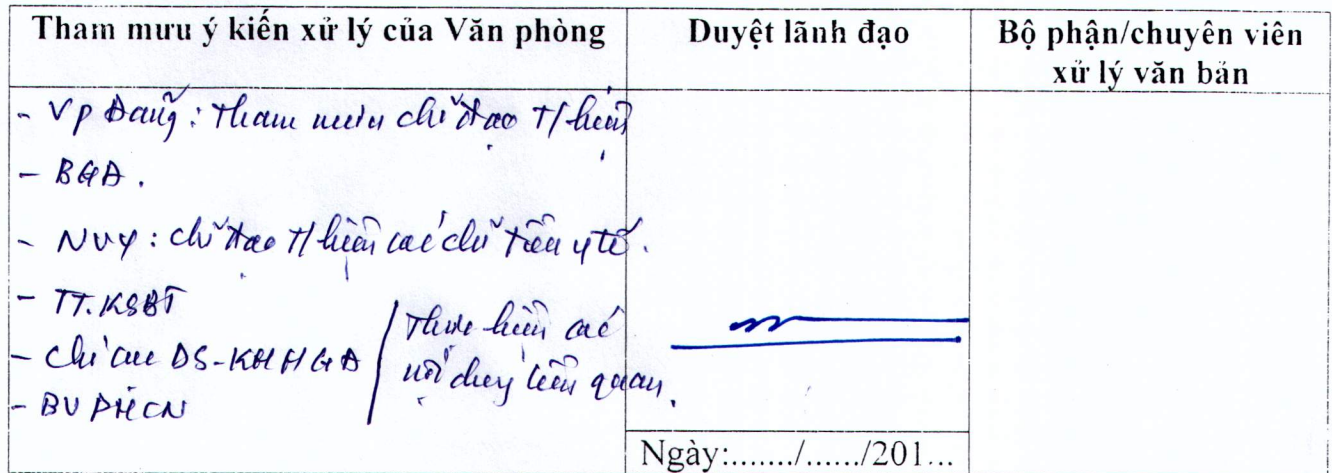 Tham mưu ý kiến xử lý của Văn phòng
Duyệt lãnh đạo
Bộ phận/chuyên viên
xử lý văn bản
- VP Đảng: Tham mưu chỉ đạo T/hiện
- BGĐ.
- NVY: chỉ đạo T/hiện các chỉ tiêu y tế.
- TT.KSBT
- Chi cục DS-KHHGĐ
- BV PHCN
Thực hiện các
nội dung liên quan.
Ngày:......./....../201...